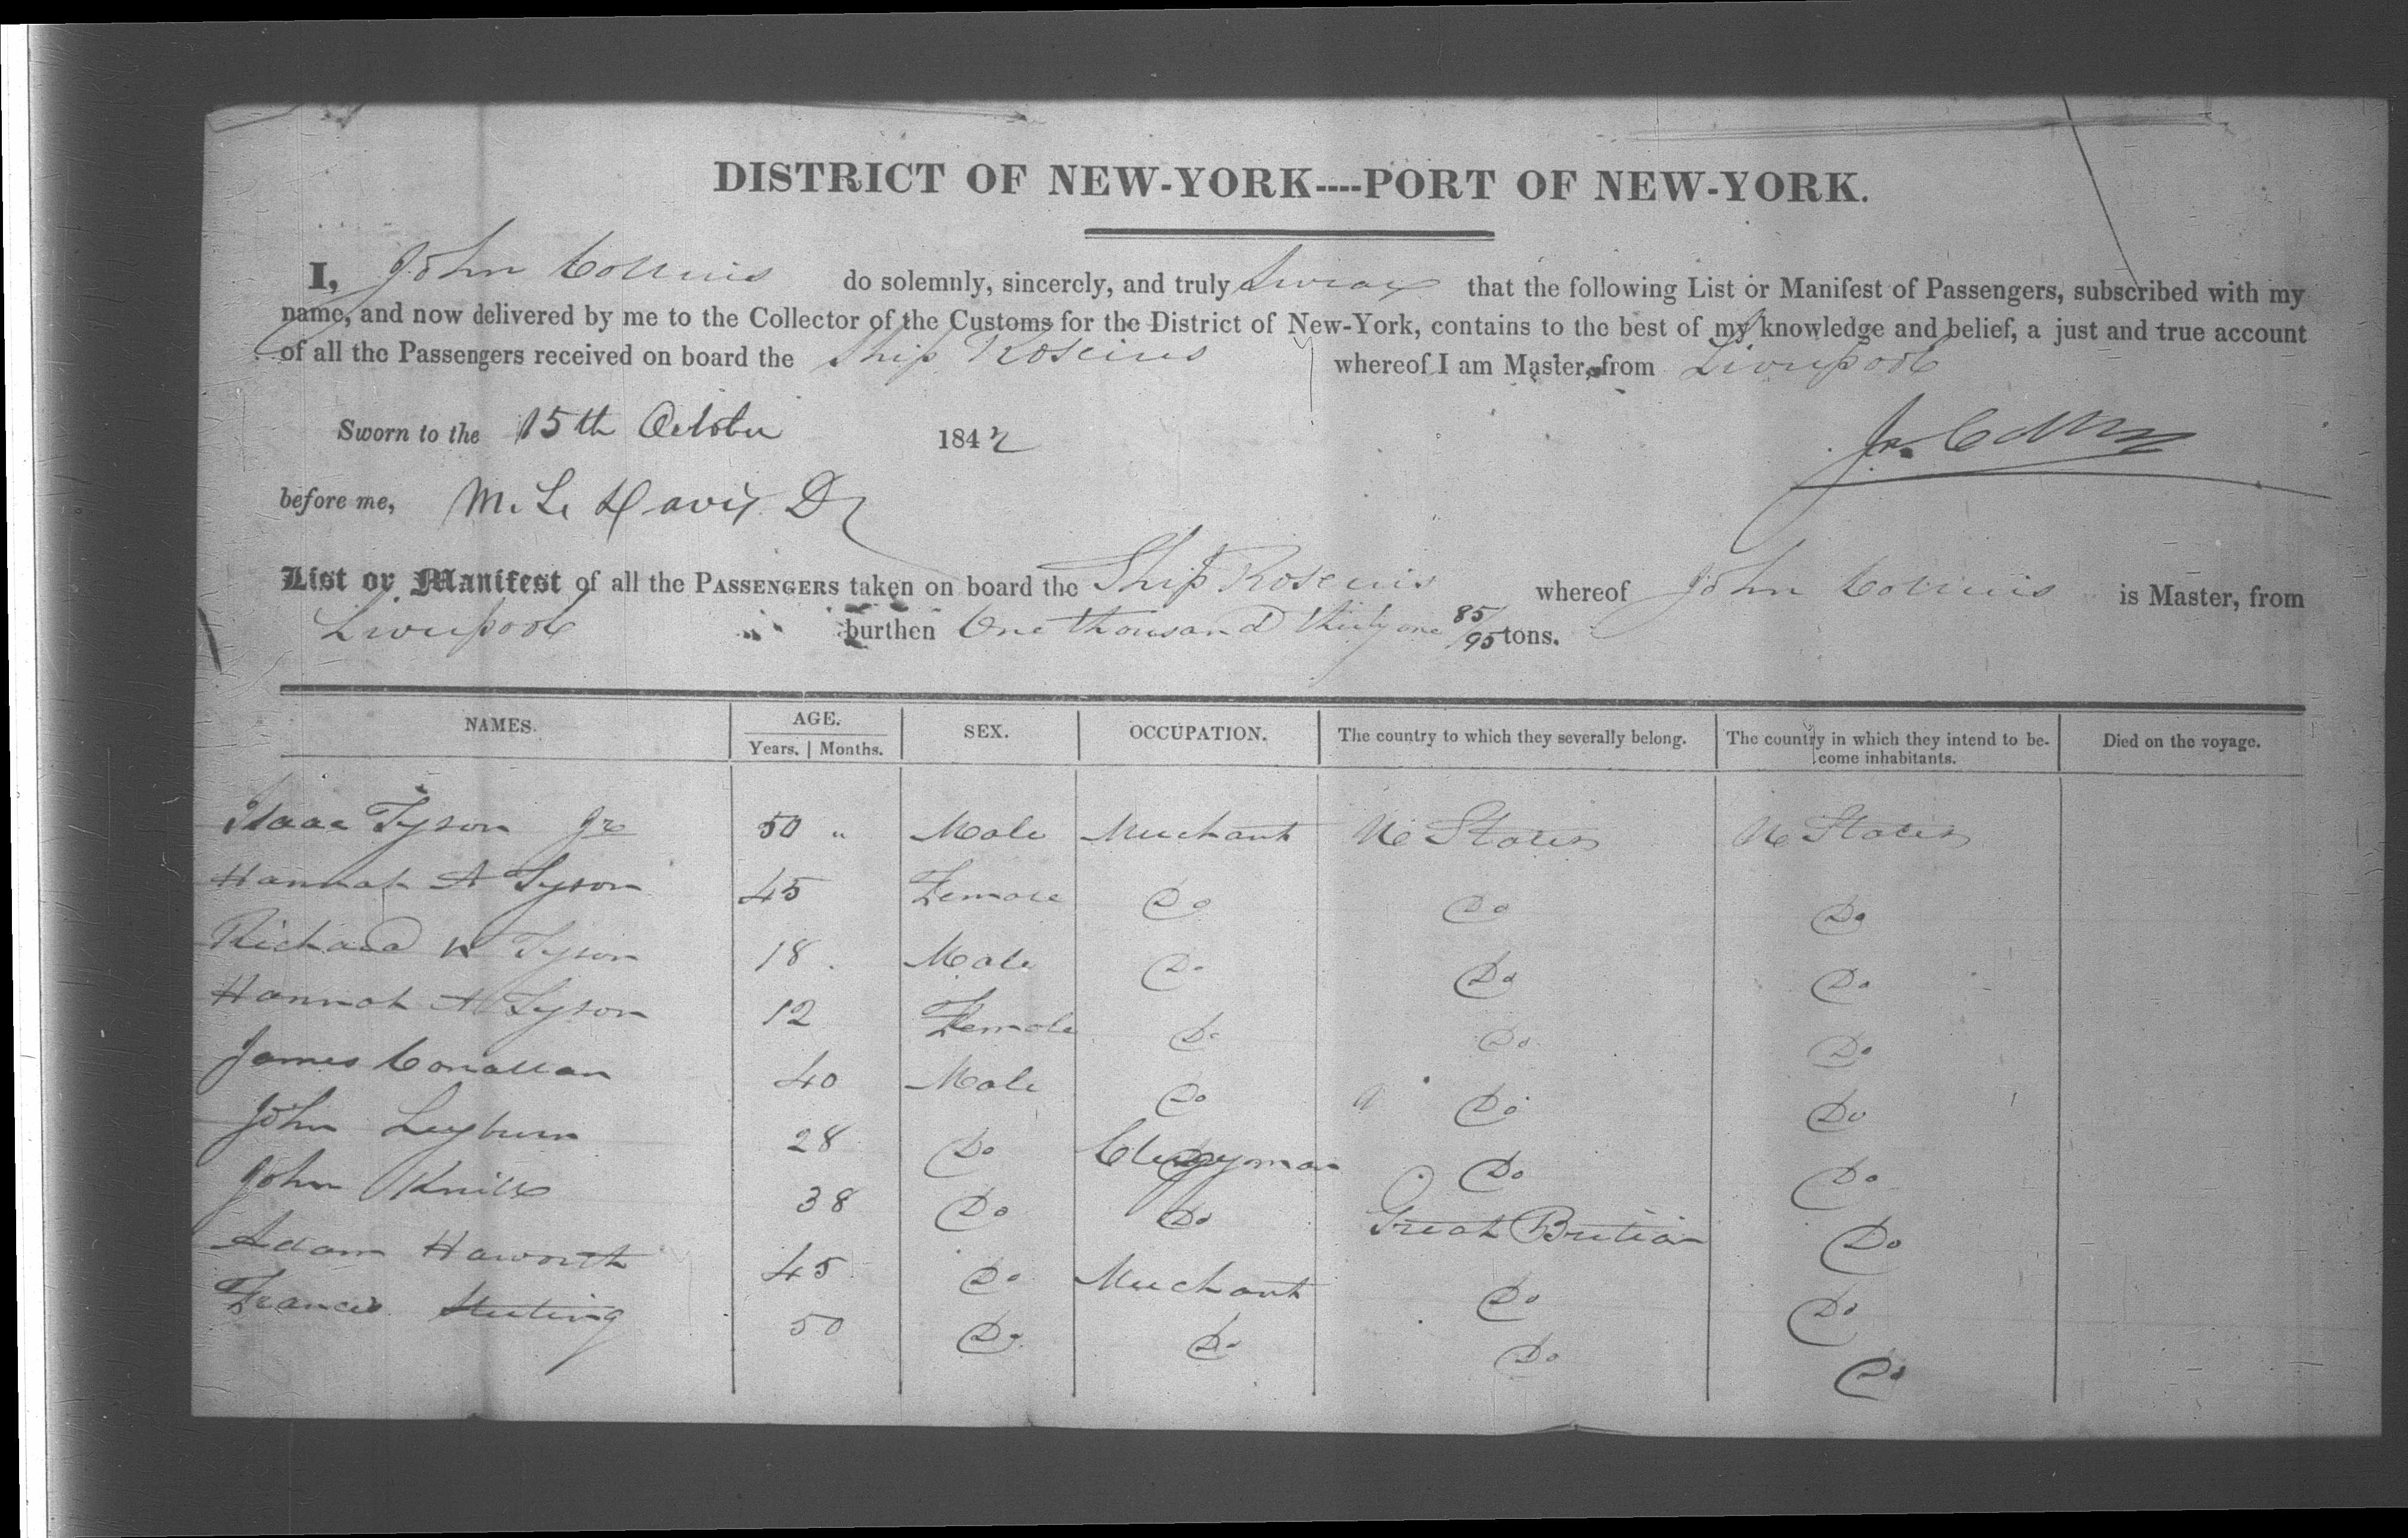 DISTRICT OF NEW-YORK----PORT OF NEW-YORK.
I, John Collins do solemnly, sincerely, and truly swear that the following List or Manifest of Passengers, subscribed with my
name, and now delivered by me to the Collector of the Customs for the District of New-York, contains to the best of my knowledge and belief, a just and true account
of all the Passengers received on board the Ship Roscius whereof I am Master, from Liverpool
Sworn to the 15th October 1842
before me, M. L. Davis
List or Manifest of all the PASSENGERS taken on board the Ship Roscius whereof John Collins is Master, from
Liverpool burthen One thousand thirty one 85/95 tons.
NAMES. AGE. SEX. OCCUPATION. The country to which they severally belong. The country in which they intend to be- Died on the voyage.
Years. | Months. come inhabitants.
Isaac Tyson Jr 50 " Male Merchant U States U States
Hannah A Tyson 45 Female Do Do Do
Richard W Tyson 18 Male Do Do Do
Hannah A Tyson 12 Female Do Do Do
James Conallan 40 Male Do Do Do
John Leyburn 28 Do Clergyman Do Do
John Knill 38 Do Do Great Britian Do
Adam Haworth 45 Do Merchant Do Do
Francis 50 Do Do Do Do